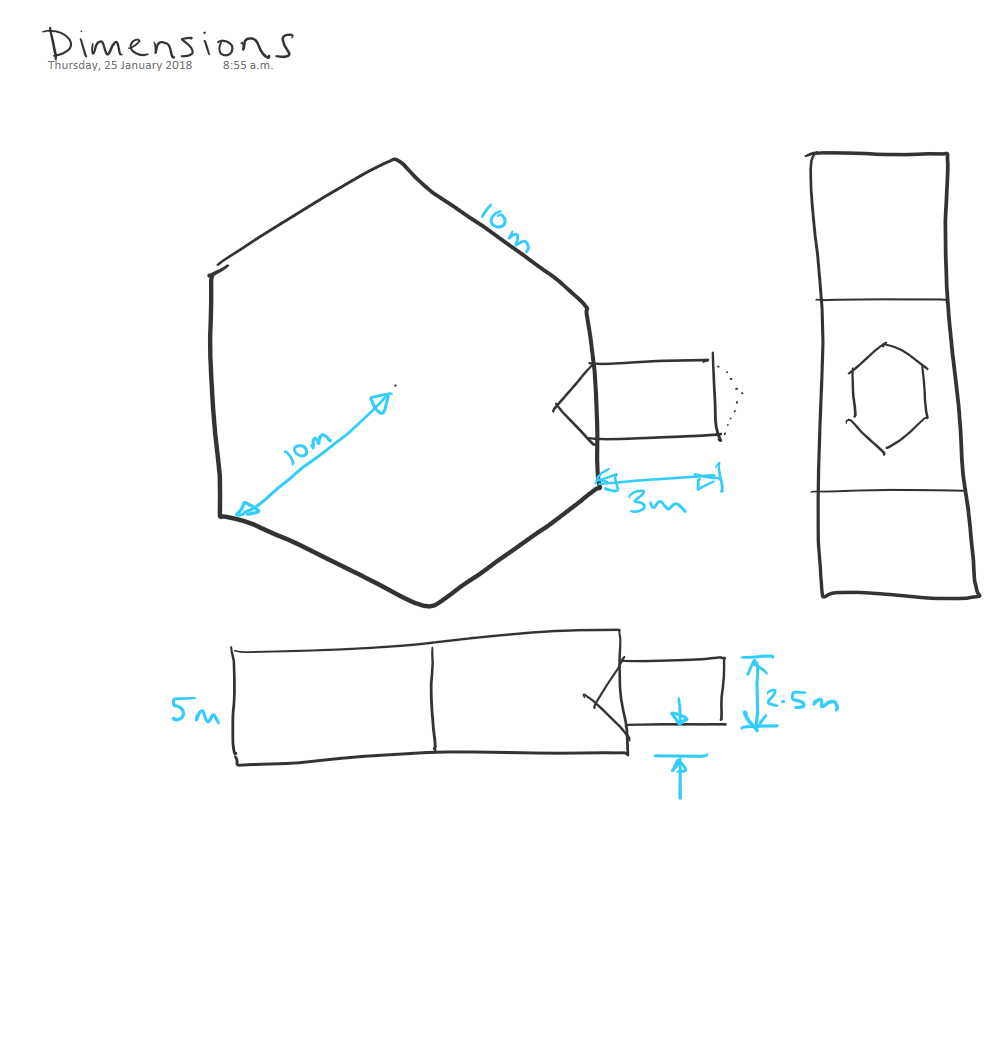 Dimensions
Thursday, 25 January 2018 8:55 a.m.
10m
10m
3m
5m
2.5m